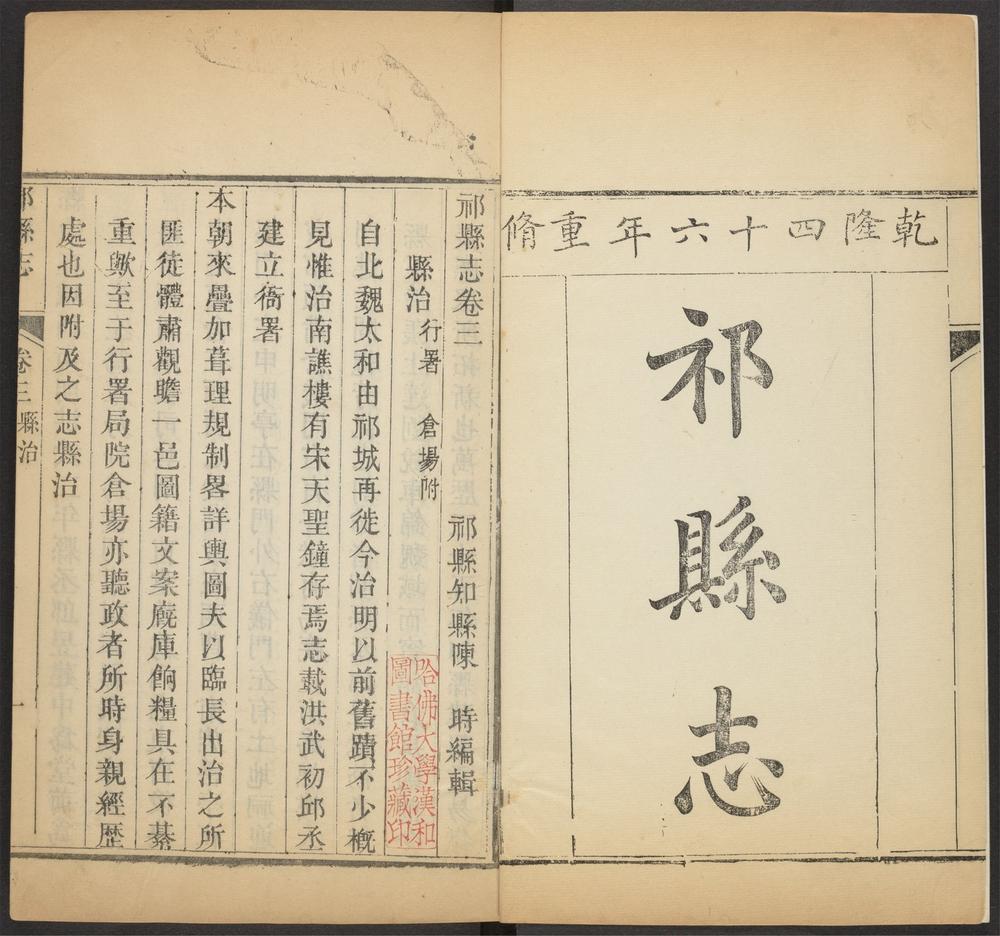 乾隆四十六年重脩
祁縣志
祁縣志卷三
祁縣知縣陳 時編輯
縣治 行署 倉場附
自北魏太和由祁城再徙今治明以前舊蹟不少概
見惟治南譙樓有宋天聖鐘存焉志載洪武初邱丞
建立衙署
本朝來疊加葺理規制畧詳輿圖夫以臨長出治之所
匪徒體肅觀瞻一邑圖籍文案廐庫餉糧具在不綦
重歟至于行署局院倉場亦聽政者所時身親經歷
處也因附及之志縣治
祁縣志
卷三 縣治
哈佛大學漢和
圖書館珍藏印